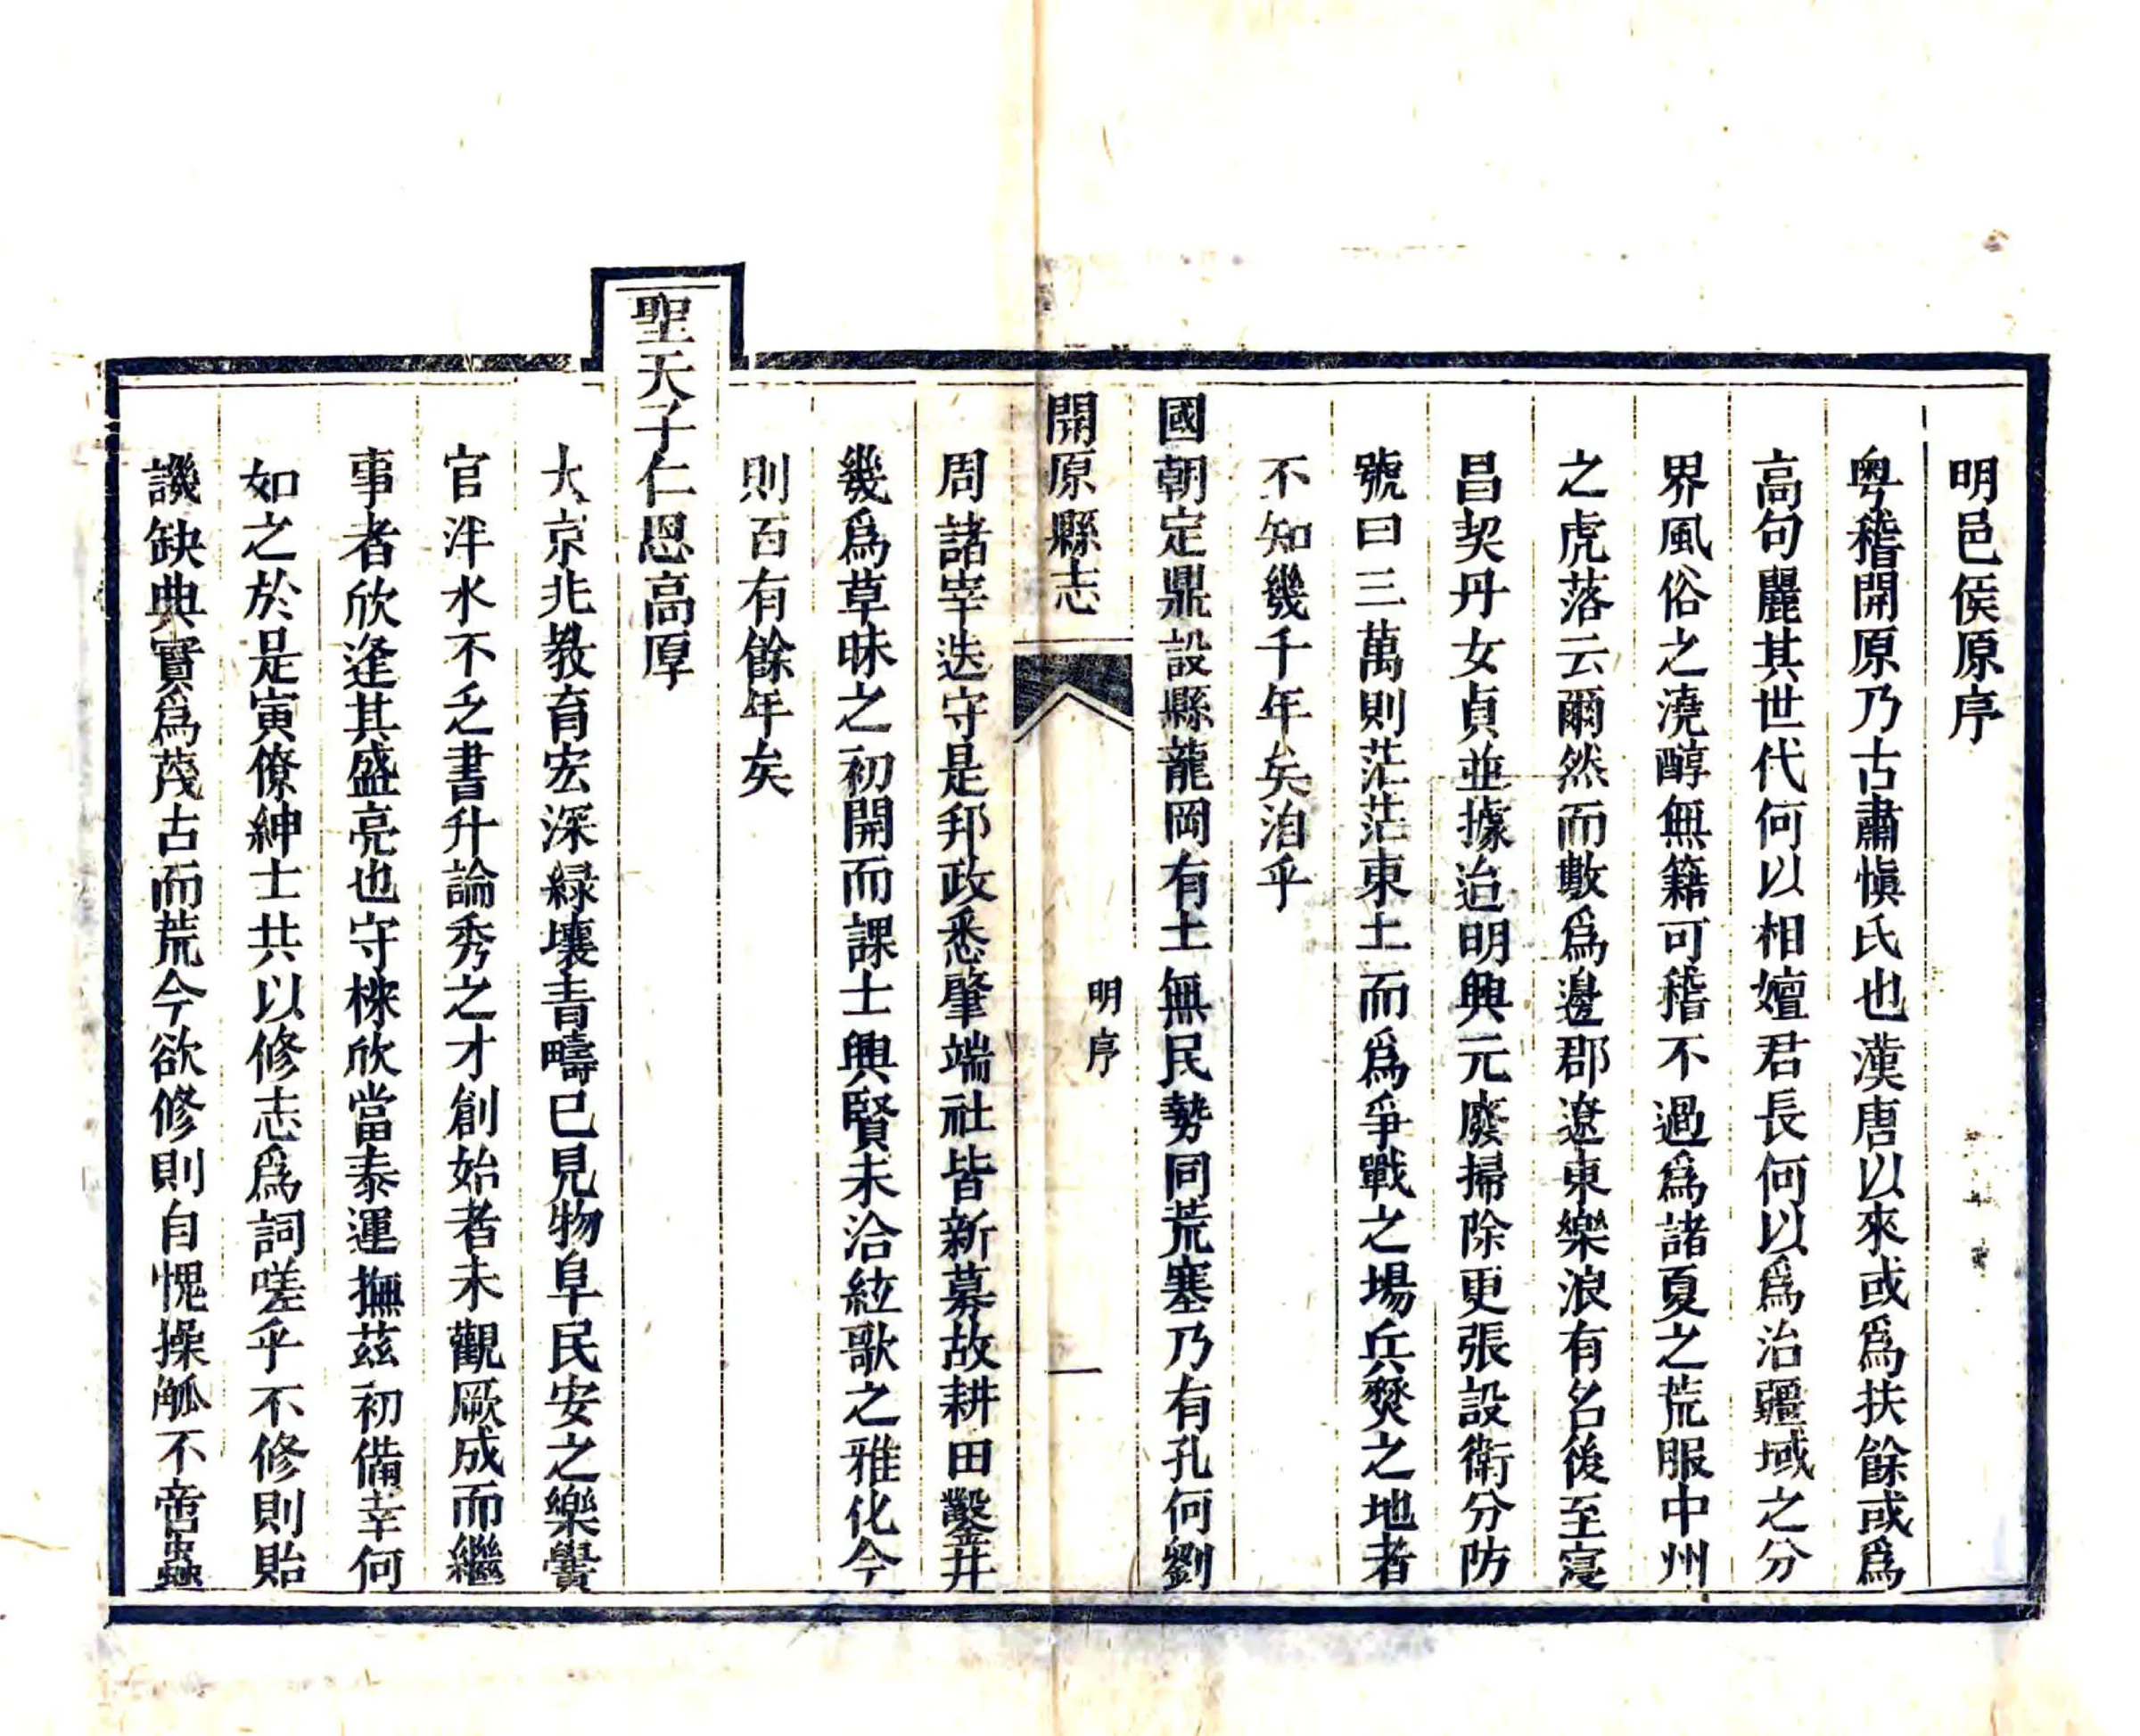 明邑侯原序
粵稽開原乃古肅愼氏也漢唐以來或爲扶餘或爲
高句麗其世代何以相嬗君長何以爲治疆域之分
界風俗之澆醇無籍可稽不過爲諸夏之荒服中州
之虎落云爾然而數爲邊郡遼東樂浪有名後至寔
昌契丹女貞並據迨明興元廢掃除更張設衛分防
號曰三萬則茫茫東土而爲爭戰之場兵燹之地者
不知幾千年矣洎乎
國朝定鼎設縣龍岡有土無民勢同荒塞乃有孔何劉
開原縣志
明序
一
周諸宰迭守是邦政悉肇端社皆新募故耕田鑿井
幾爲草昧之初開而課士興賢未洽絃歌之雅化今
則百有餘年矣
聖天子仁恩高厚
大京兆敎育宏深綠壤青疇已見物阜民安之樂黌
官泮水不乏書升論秀之才創始者未觀厥成而繼
事者欣逢其盛亮也守株欣當泰運撫茲初備幸何
如之於是寅僚紳士共以修志爲詞嗟乎不修則貽
譏缺典實爲蔑古而荒今欲修則自愧操觚不啻蟲